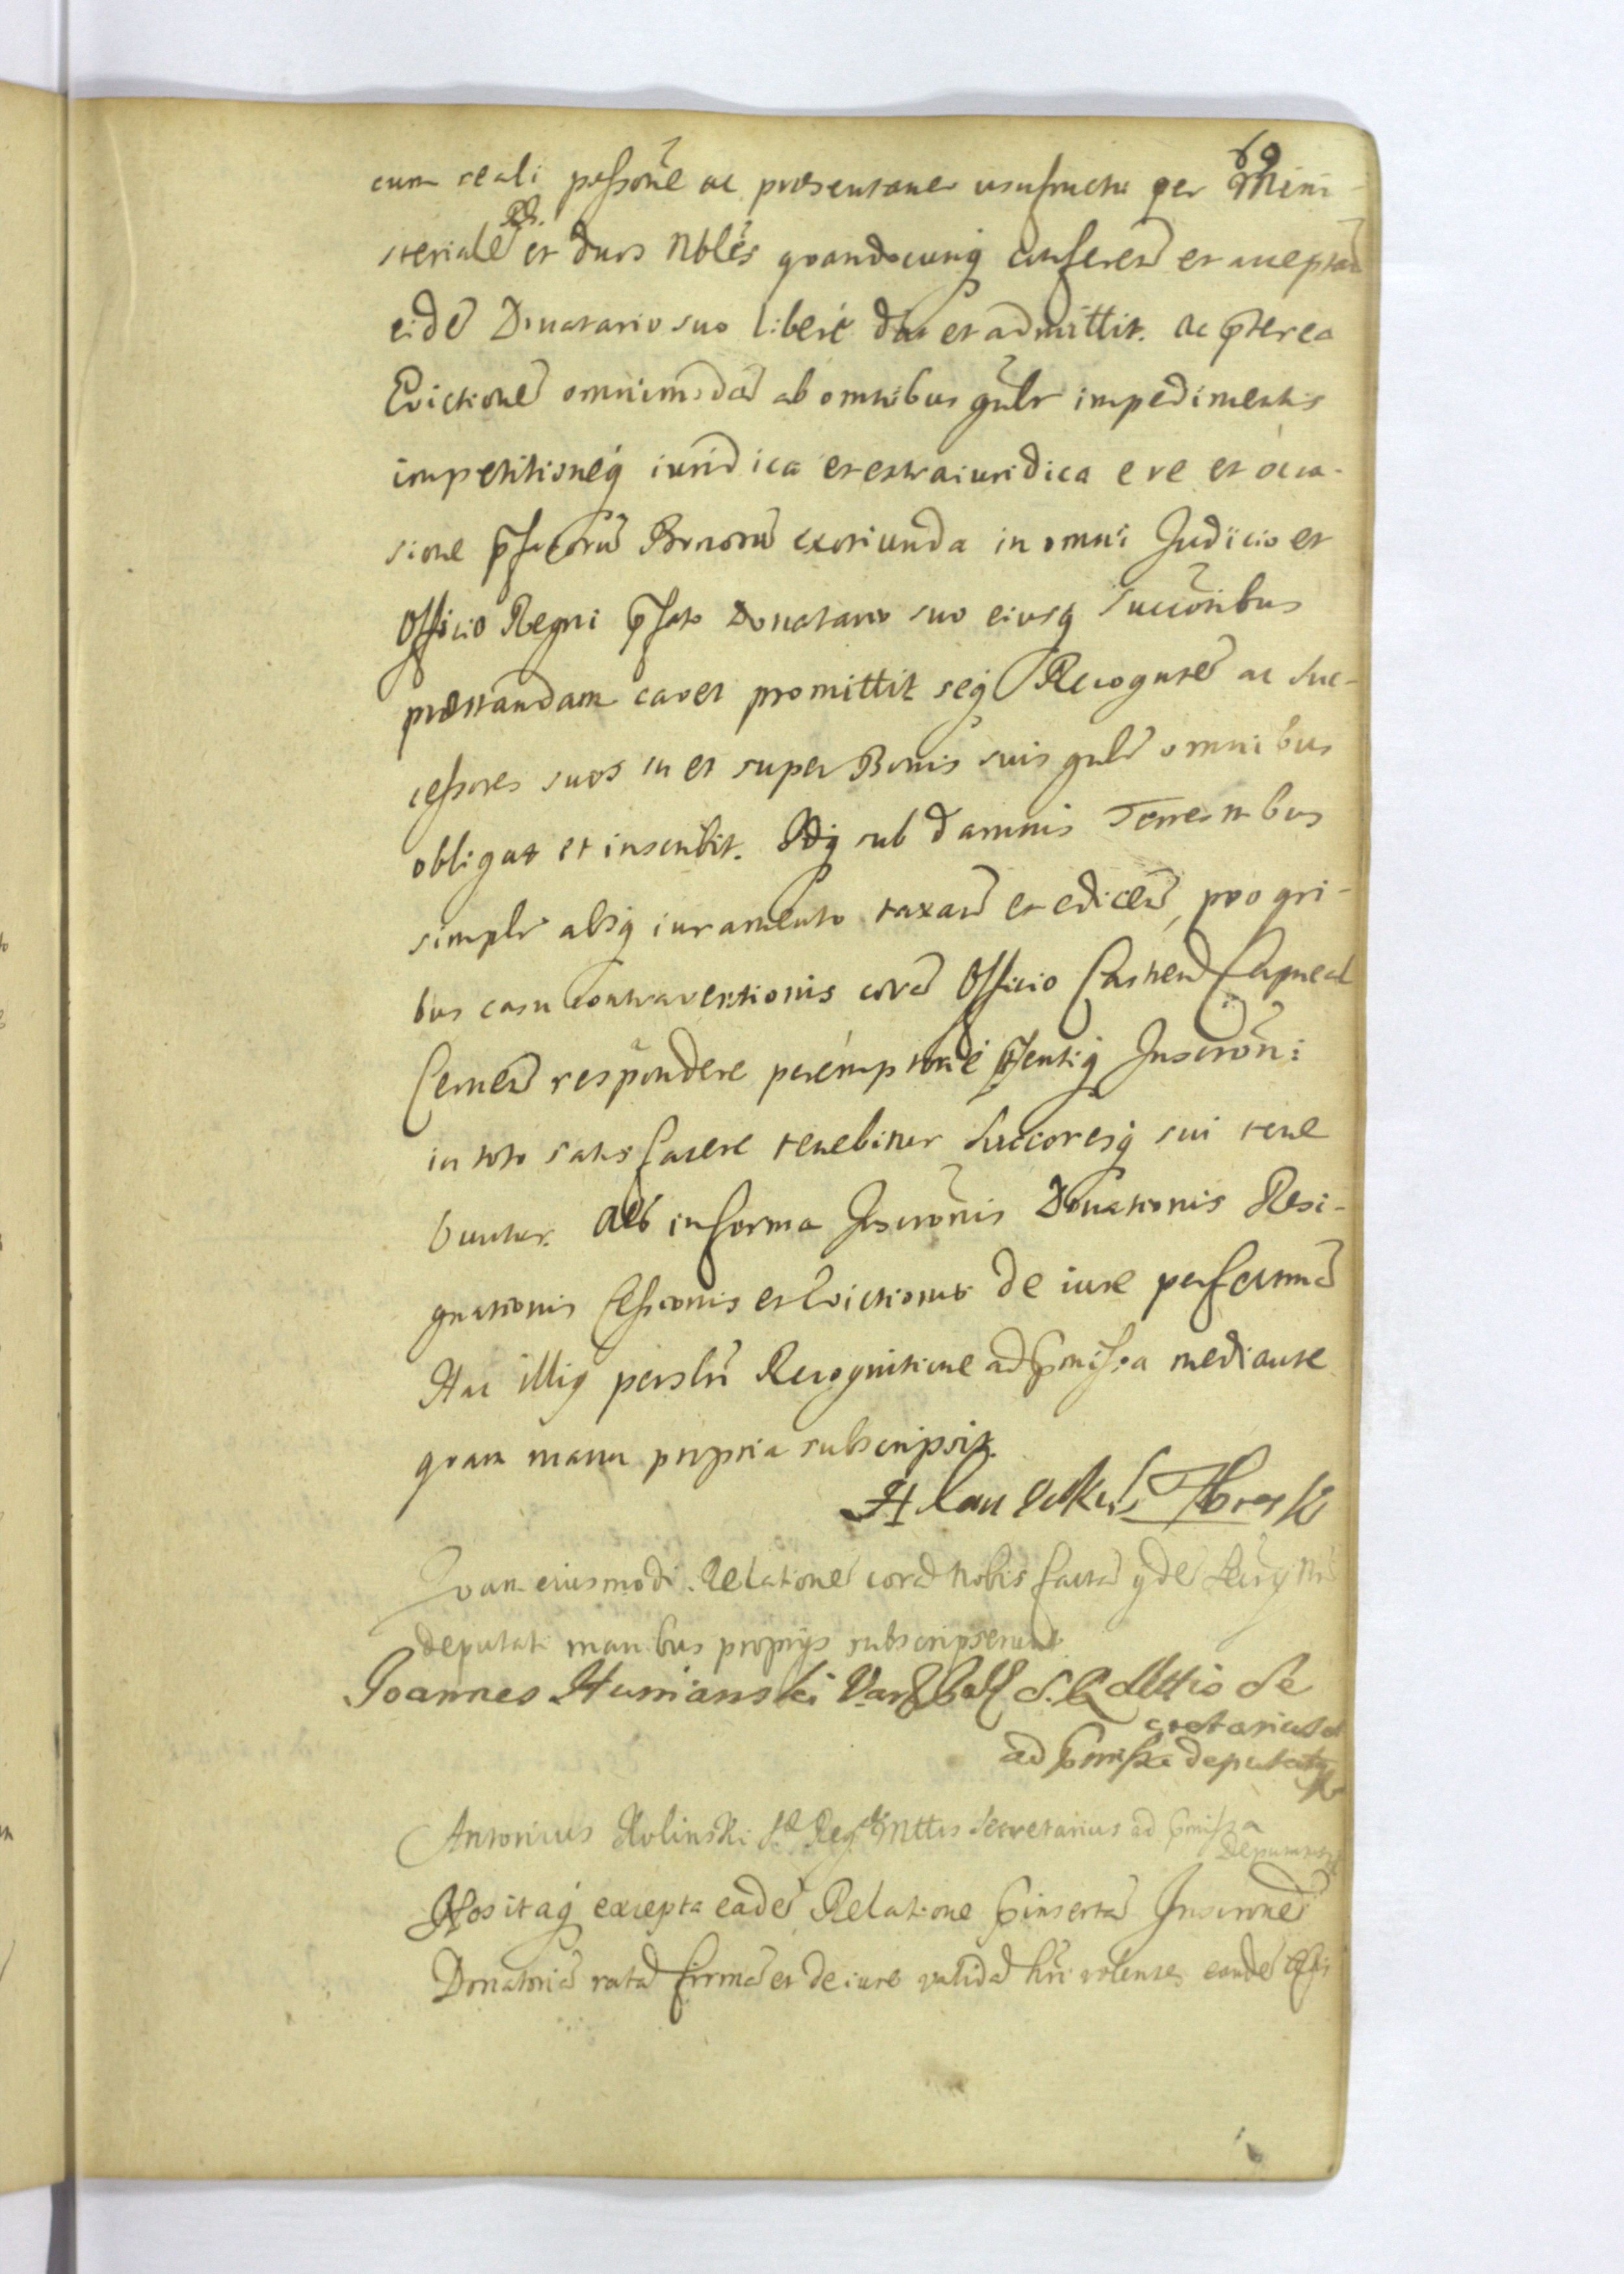 69
cum reali possõne ac præsentaneo usufructu per Mini-
Rñ.
steriale et duos Nbles quandocunq conferen et acceptan
eidē Donatario suo liberè dat et admittit. Ac p̄terea
Evictionē omnimodā ab omnibus gñlr impedimentis
impetitioneq iuridica et extraiuridica e re et occa-
sione p̄fatorū Bonorū exoriunda in omni Judicio et
Officio Regni p̄fato Donatario suo eiusq Succõribus
præstandam cavet promittit seq Recognitē ac Suc-
cessores suos in et super Bonis suis gnlr omnibus
obligat et inscribit. Idq sub damnis Terrestribus
simplr absq iuramento taxan et edicen, pro qui-
bus casu contraventionis corā Officio Castren Capneal
Cernen respondere perémptoriè p̄sentiq Inscrõni
in toto satisfacere tenebitur Succoresq sui tene
buntur. in forma Inscrõnis Donationis Resi-
gnationis Cessionis et Evictionis de iure perfectiunā
Hac illiq persl̄ri Recognitione ad p̄missa mediante
quam manu propria subscripsit.
Quam eiusmodi Relationē corā Nobis factā ydē Secrij Nri
deputati manibus proprijs subscripserunt.
Joannes Humianski S. R. Mttis Se
cretarius et
ad p̄missa deputatq
Antonius Kolinski S Reg Mttis Secretarius ad p̄missa
Deputatus
Nos itaq excepta eadē Relatione p̄insertā Inscronē
Donatoriā ratā firmā et de iure validā hri volentes eandē